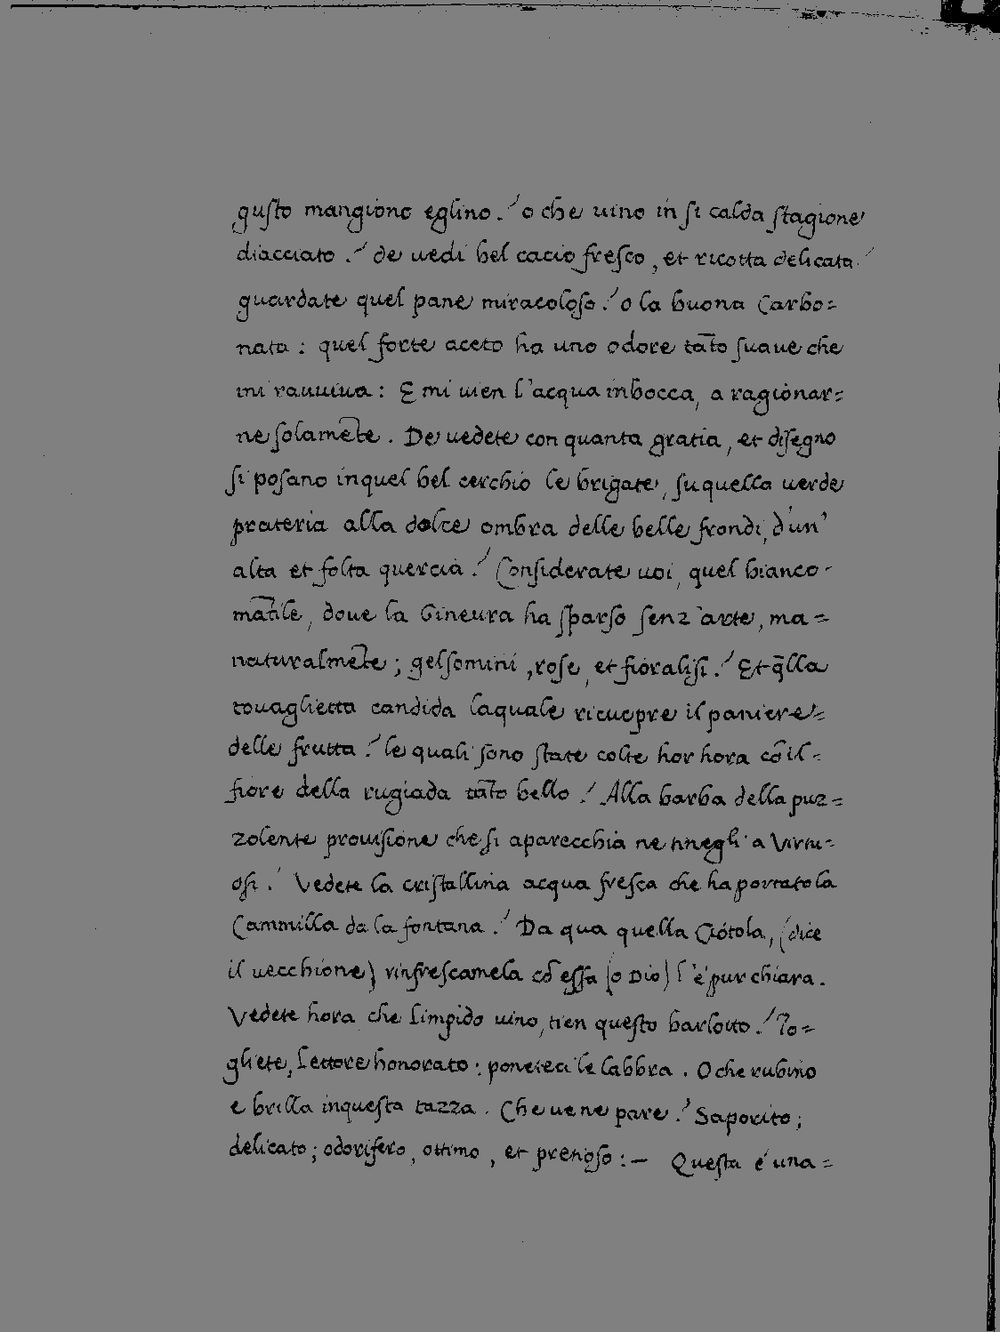 gusto mangiono eglino.' o che uino in si calda stagione
diacciato.' de uedi bel cacio fresco, et ricotta delicata.'
guardate quel pane miracoloso.' o la buona Carbo=
nata: quel forte aceto ha uno odore tāto suaue che
mi rauuiua: E mi uien l'acqua inbocca, a ragionar=
ne solamēte. De uedete con quanta gratia, et disegno
si posano inquel bel cerchio le brigate, su quella uerde
prateria alla dolce ombra delle belle frondi, d'un'
alta et folta quercia.' Considerate uoi, quel bianco-
mātile, doue la Gineura ha sparso senz'arte, ma=
naturalmēte; gelsomini, rose, et fioralisi.' Et q̄lla
touaglietta candida laquale ricuopre il paniere=
delle frutta.' le quali sono state colte hor hora cō il=
fiore della rugiada tāto bello.' Alla barba della puz=
zolente prouisione che si aparecchia ne tinegli a Virtu=
osi.' Vedete la cristallina acqua fresca che ha portato la
Cammilla da la fontana.' Da qua quella Ciotola, (dice
il uecchione) rinfrescamela cō essa (o Dio) l'è pur chiara.
Vedete hora che limpido uino, tien questo barlotto.' To=
gliete, Lettore honorato: poneteci le labbra. O che rubino
e brilla inquesta tazza. Che ue ne pare.' Saporito;
delicato; odorifero, ottimo, et pretioso:— Questa é una=